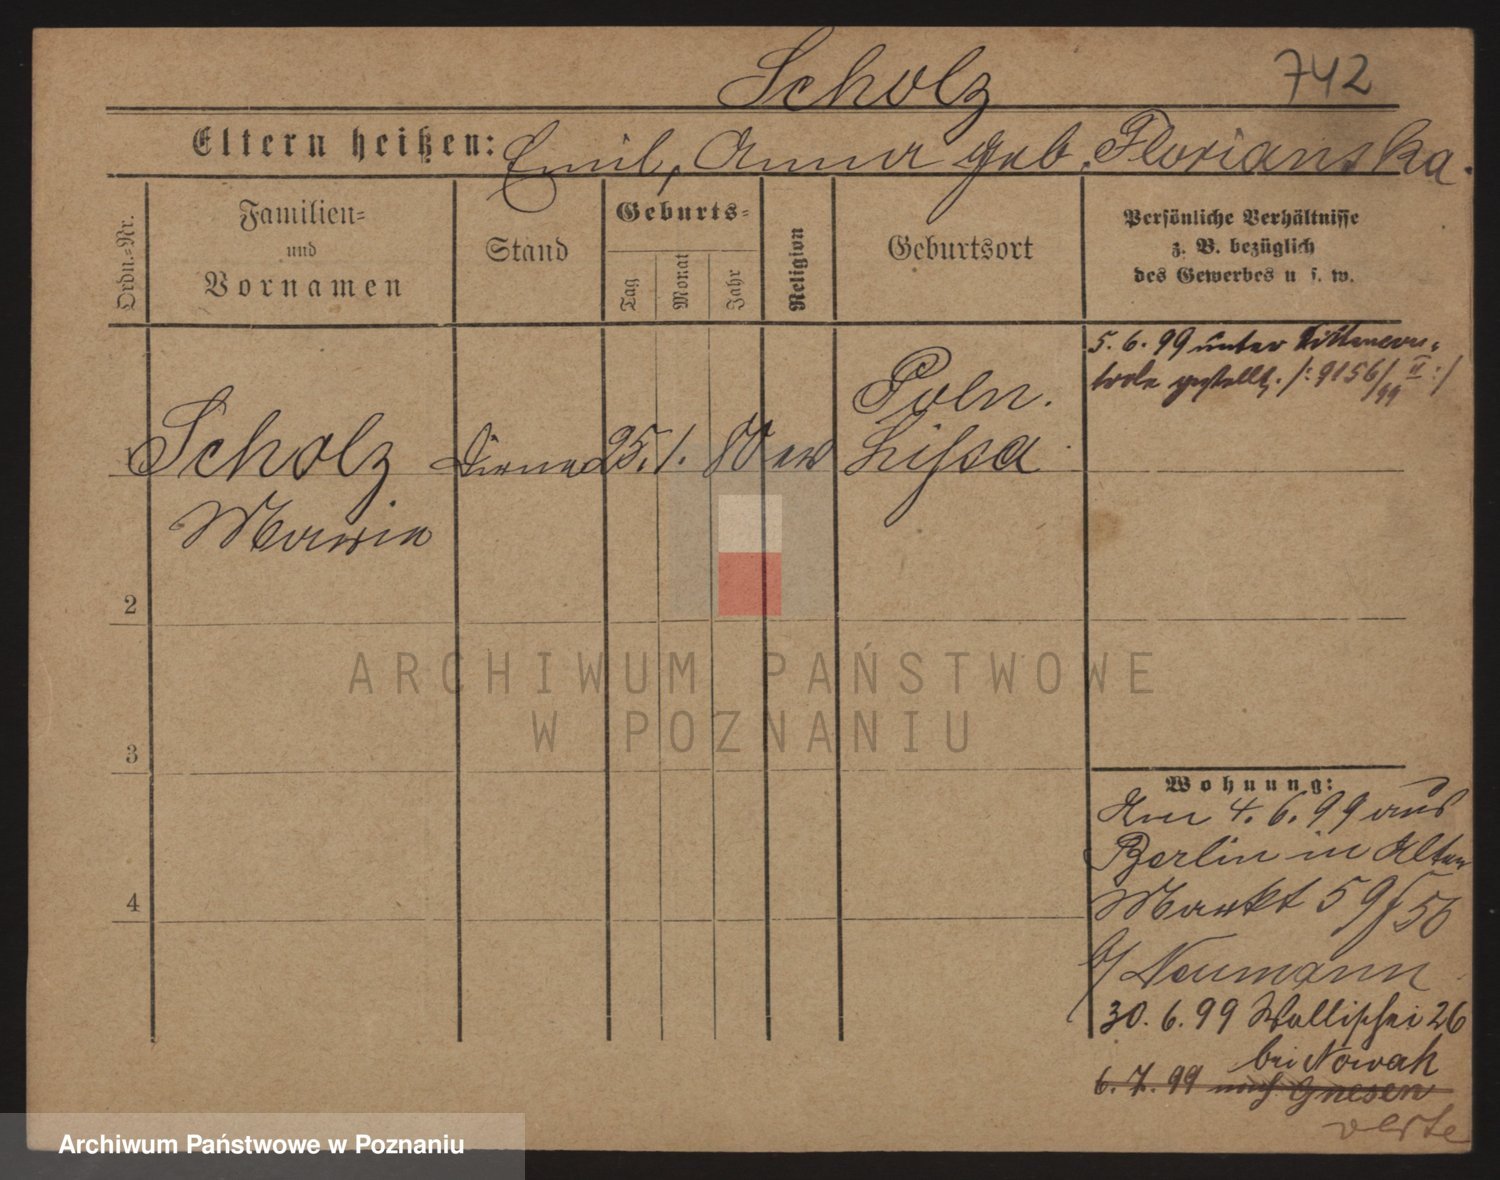 Scholz
742
Eltern heißen: Emil, Anna geb. Florianska.
Ordn.=Nr.
Familien=
und
Vornamen
Stand
Geburts=
Tag
Monat
Jahr
Religion
Geburtsort
Persönliche Verhältnisse
z. B. bezüglich
des Gewerbes u. s. w.
5. 6. 99 unter Sittencon=
trole gestellt. /: 9156/99 II :/
1 Scholz Dirne 25. 1. 80 ev Poln.
Lissa
Maria
2
3
4
Wohnung:
Am 4. 6. 99 aus
Berlin in Alten
Markt 59/56
b/ Neumann
30. 6. 99 Wallischei 26
bei Nowak
6. 7. 99 nach Gnesen
verte
ARCHIWUM PAŃSTWOWE
W POZNANIU
Archiwum Państwowe w Poznaniu